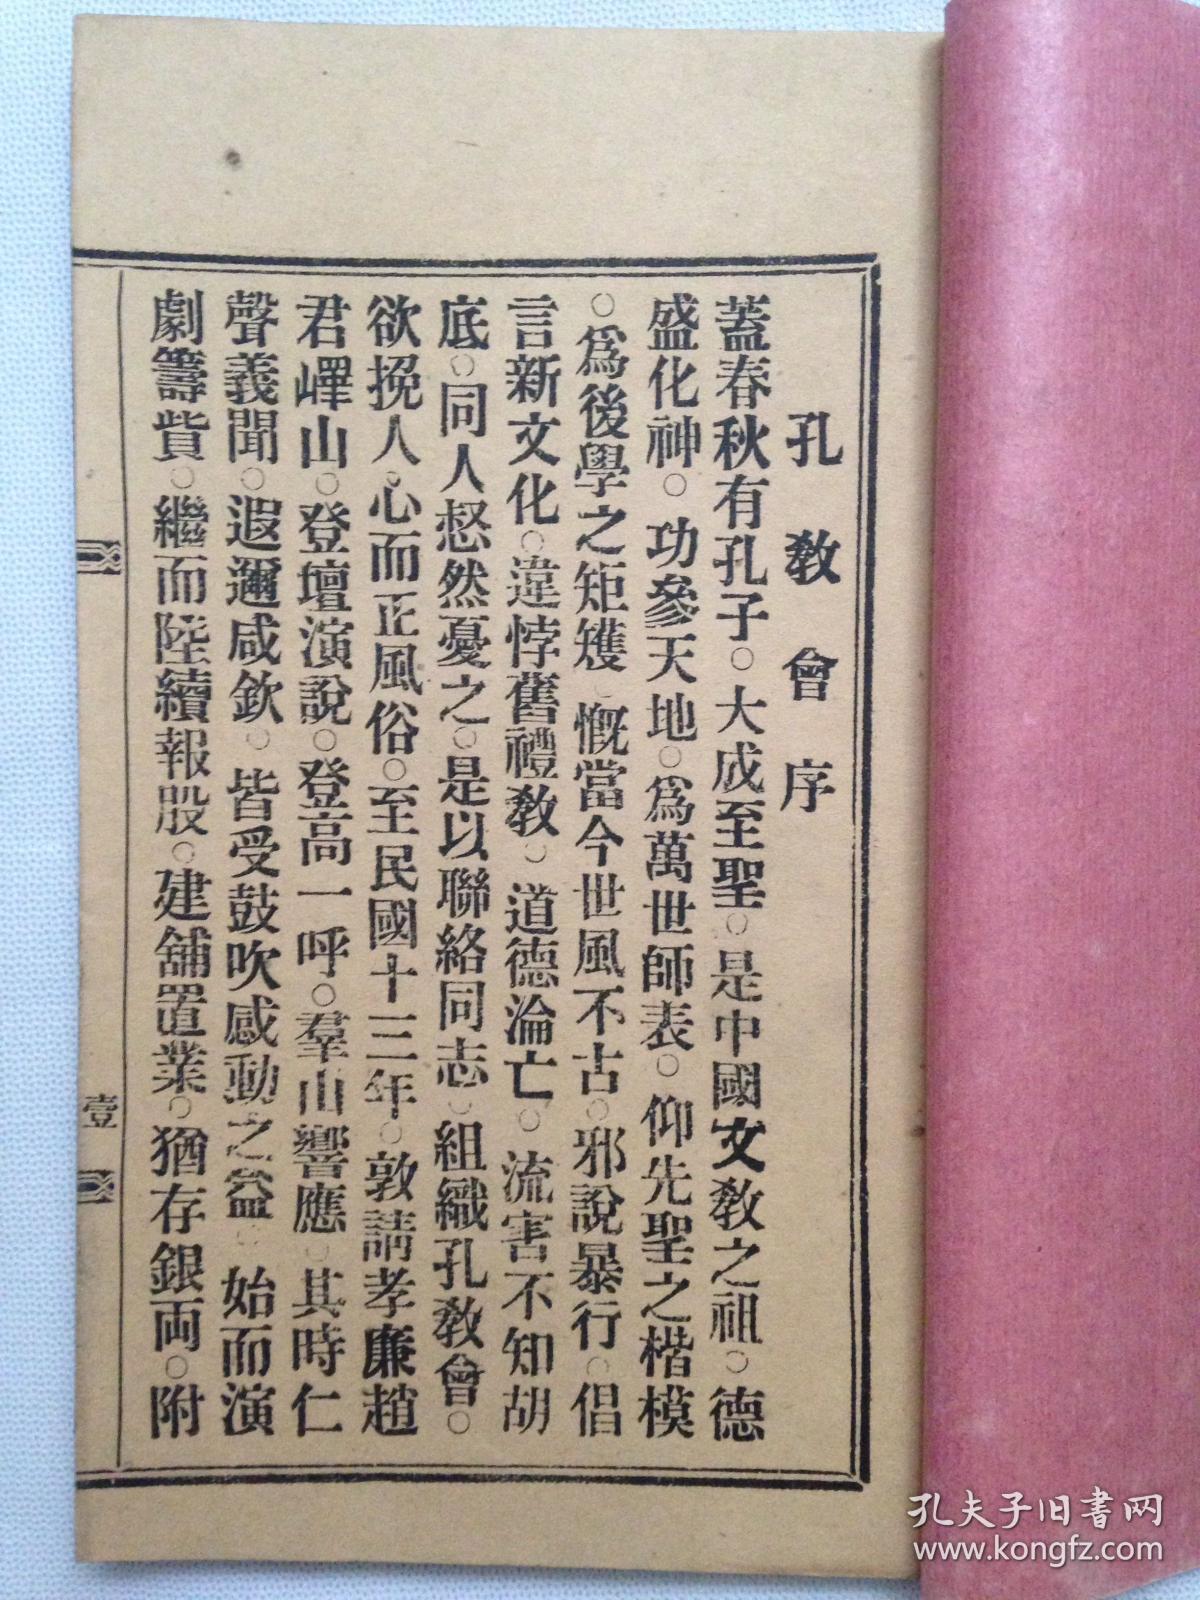 孔教會序
蓋春秋有孔子○大成至聖○是中國文教之祖○德
盛化神○功參天地○爲萬世師表○仰先聖之楷模
○爲後學之矩矱○慨當今世風不古○邪說暴行○倡
言新文化○違悖舊禮教○道德淪亡○流害不知胡
底○同人惄然憂之○是以聯絡同志○組織孔教會○
欲挽人心而正風俗○至民國十三年○敦請孝廉趙
君嶧山○登壇演說○登高一呼○羣山響應○其時仁
聲義聞○遐邇咸欽○皆受鼓吹感動之益○始而演
劇籌貲○繼而陸續報股○建舖置業○猶存銀両○附
壹
孔夫子旧书网
www.kongfz.com